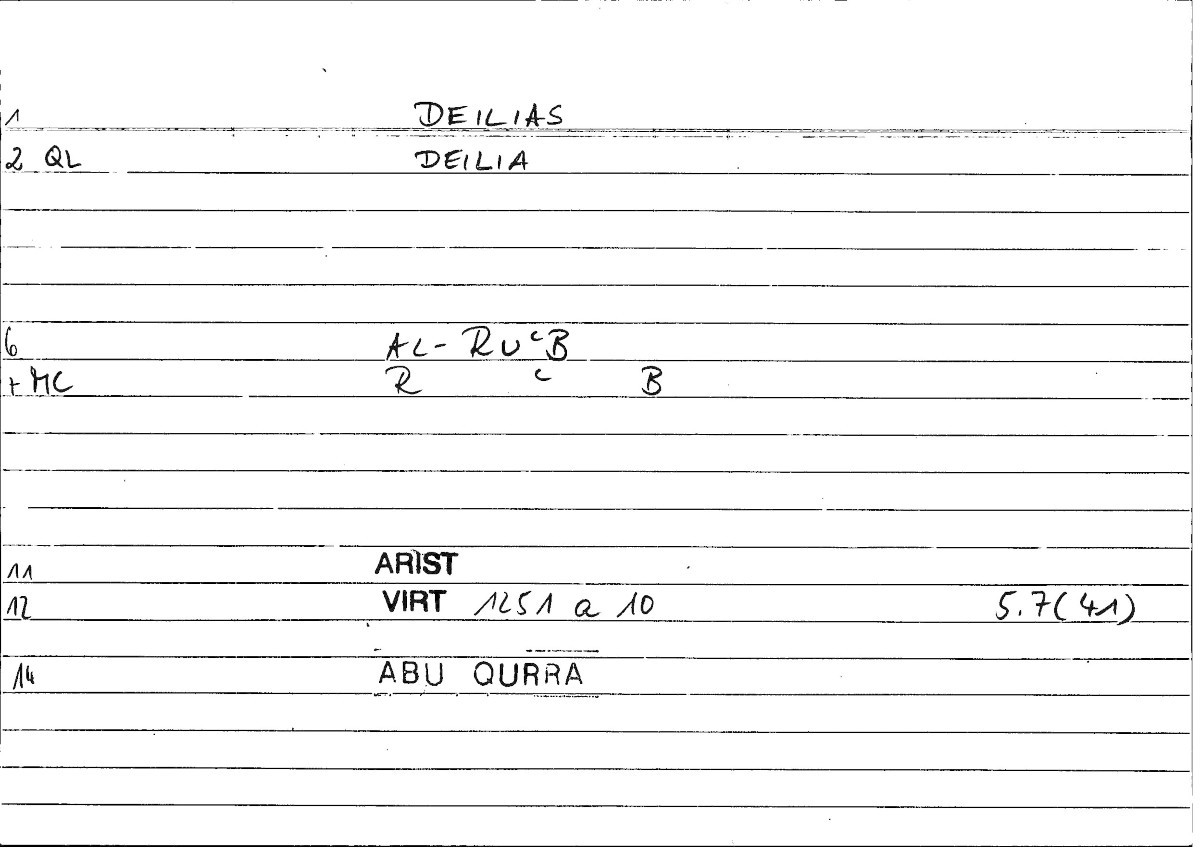 1 DEILIAS
2 QL DEILIA
6 AL-RUᶜB
+ MC R ᶜ B
11 ARIST
12 VIRT 1251 a 10 5.7(41)
14 ABU QURRA